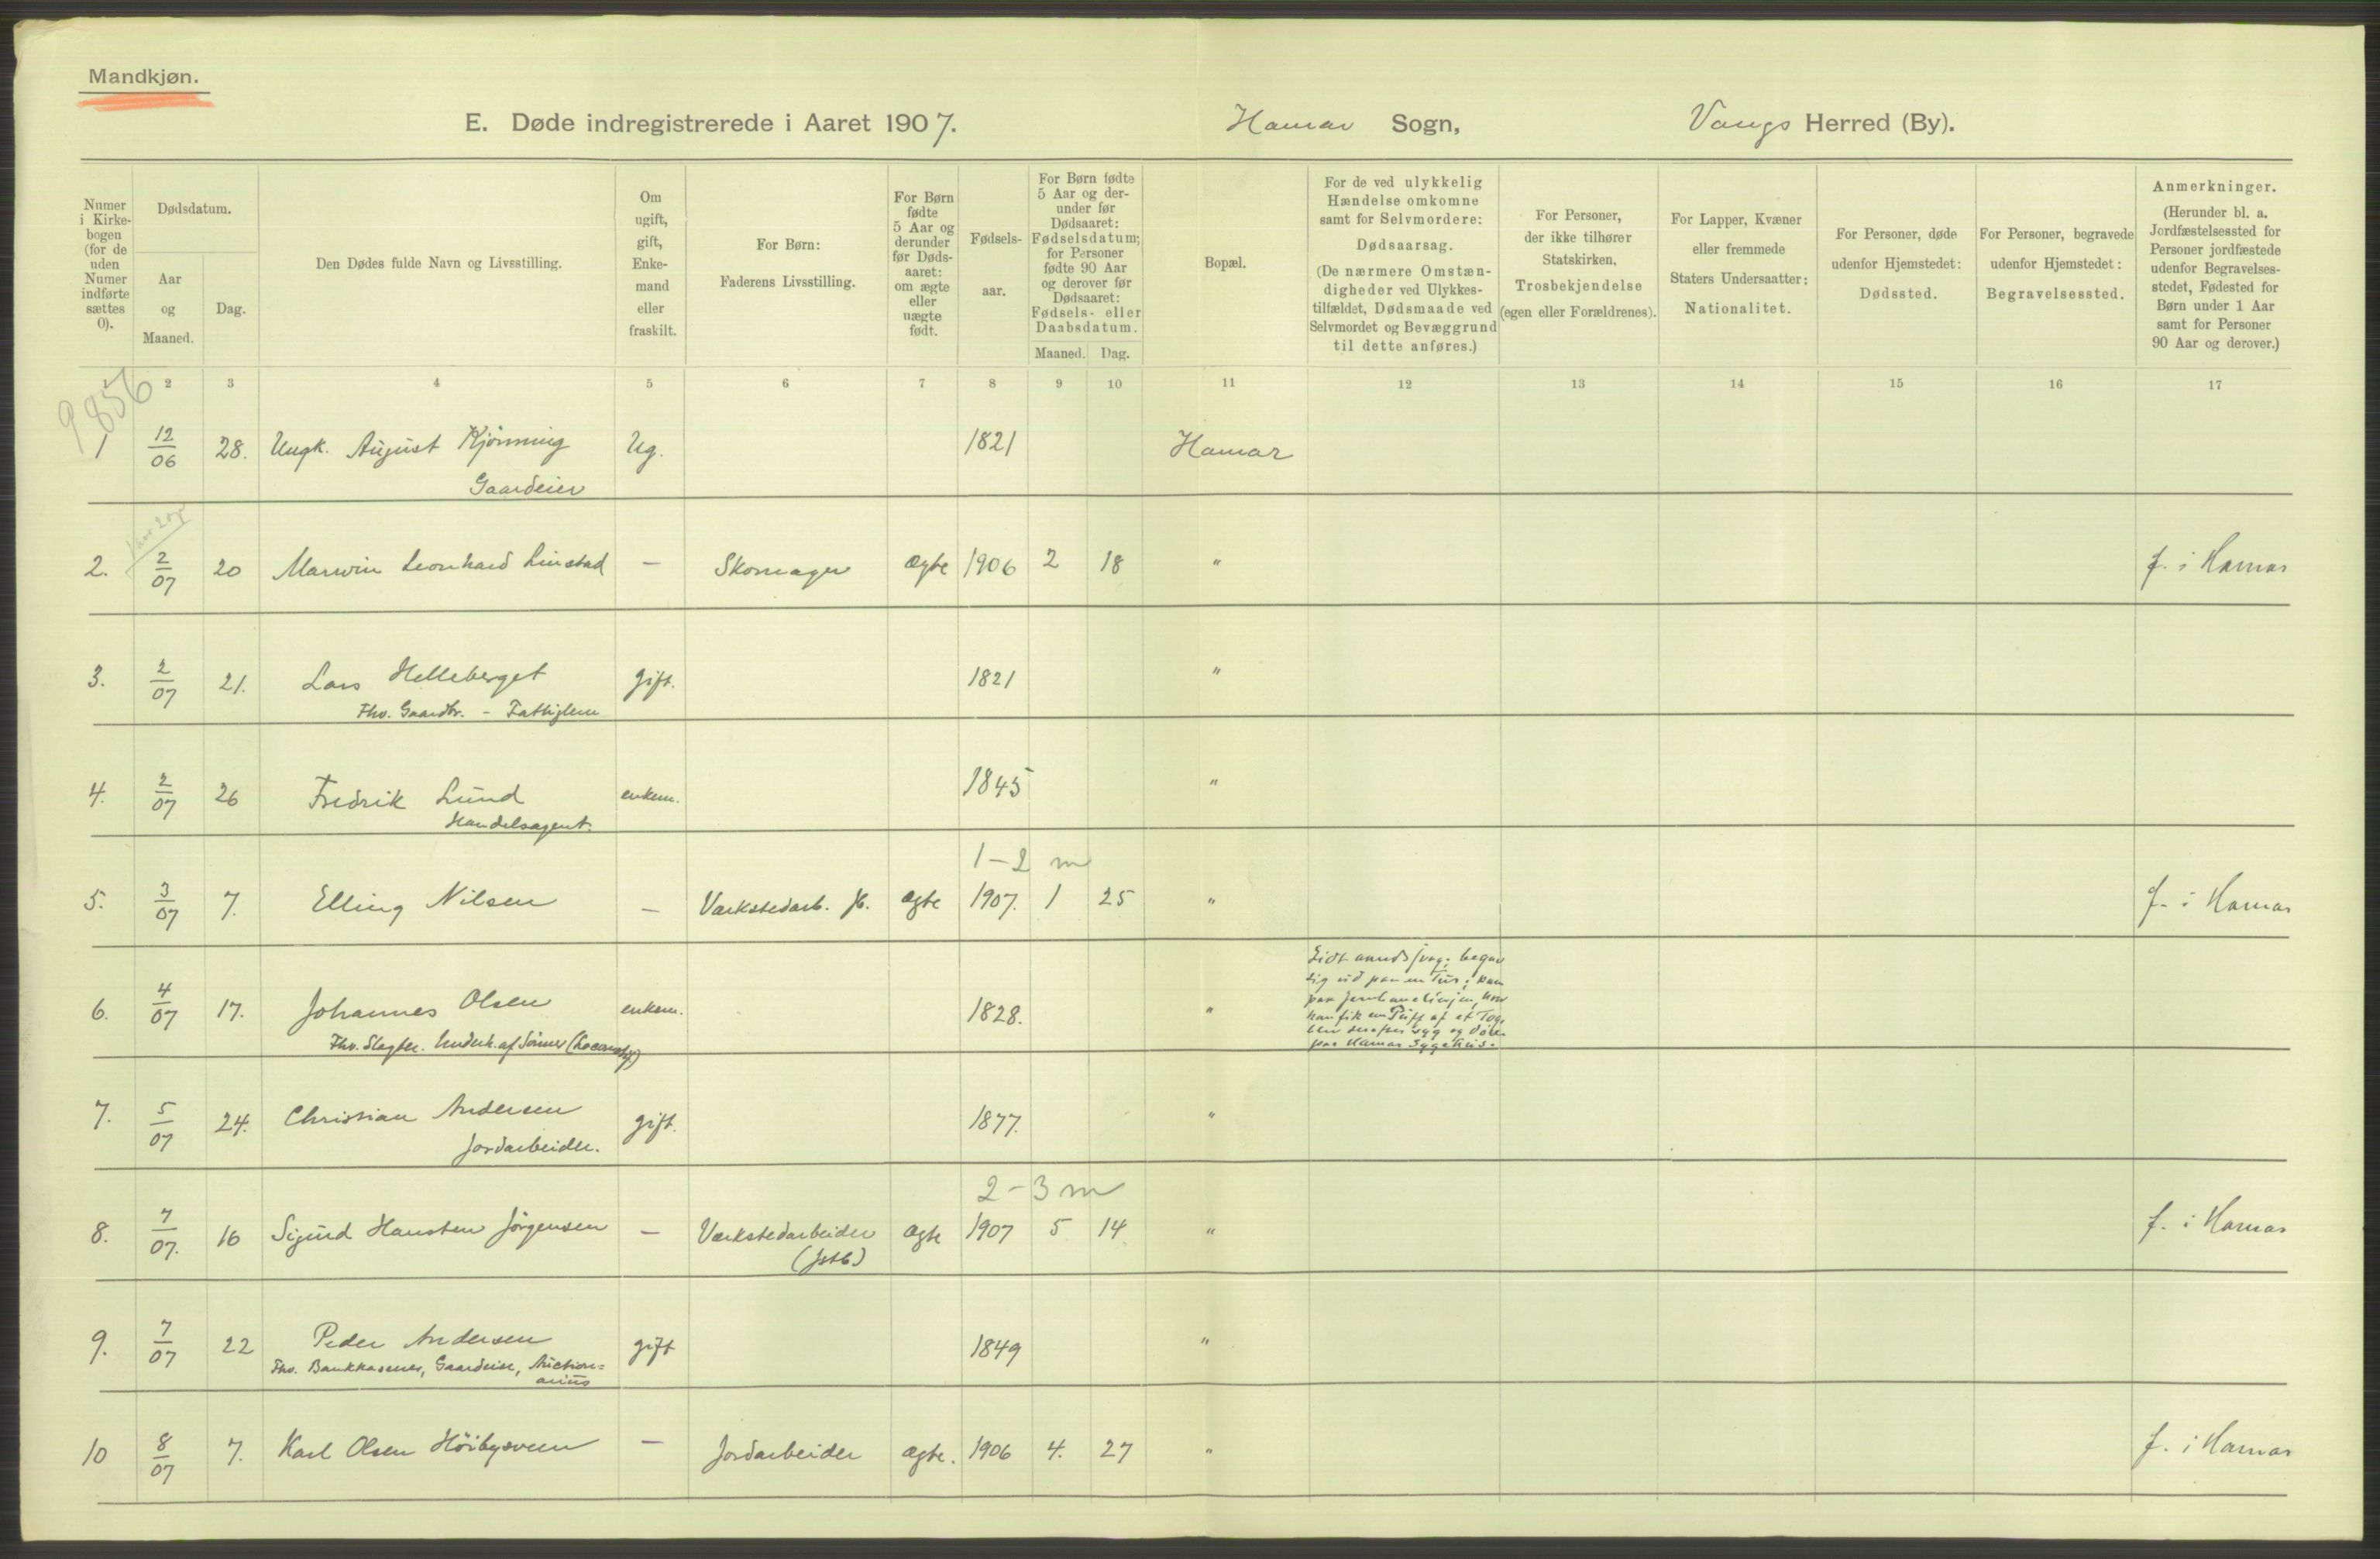 Mandkjøn.
E. Døde indregistrerede i Aaret 1907. Hamar Sogn, Vangs Herred (By).
Numer i Kirkebogen (for de uden Numer indførte sættes 0).
Dødsdatum.
Aar og Maaned.
Dag.
Den Dødes fulde Navn og Livsstilling.
Om ugift, gift, Enkemand eller fraskilt.
For Børn: Faderens Livsstilling.
For Børn fødte 5 Aar og derunder før Dødsaaret: om ægte eller uægte født.
Fødselsaar.
For Børn fødte 5 Aar og derunder før Dødsaaret: Fødselsdatum; for Personer fødte 90 Aar og derover før Dødsaaret: Fødsels- eller Daabsdatum.
Maaned. Dag.
Bopæl.
For de ved ulykkelig Hændelse omkomne samt for Selvmordere: Dødsaarsag. (De nærmere Omstændigheder ved Ulykkestilfældet, Dødsmaade ved Selvmordet og Bevæggrund til dette anføres.)
For Personer, der ikke tilhører Statskirken, Trosbekjendelse (egen eller Forældrenes).
For Lapper, Kvæner eller fremmede Staters Undersaatter: Nationalitet.
For Personer, døde udenfor Hjemstedet: Dødssted.
For Personer, begravede udenfor Hjemstedet: Begravelsessted.
Anmerkninger. (Herunder bl. a. Jordfæstelsessted for Personer jordfæstede udenfor Begravelsesstedet, Fødested for Børn under 1 Aar samt for Personer 90 Aar og derover.)
1 2 3 4 5 6 7 8 9 10 11 12 13 14 15 16 17
9856
1 12/06 28. Ungk. August Kjönning Ug. 1821 Hamar
Gaardeier
2. 2/07 20 Marwin Leonhard Linstad — Skomager ægte 1906 2 18 " f. i Hamar
3. 2/07 21. Lars Helleberget gift. 1821 "
Fhv. Gaardbr. - Fattiglem
4. 2/07 26 Fredrik Lund enkem. 1845 "
Handelsagent.
1-2 m
5. 3/07 7. Elling Nilsen — Værkstedarb. ægte 1907. 1 25 " f. i Hamar
6. 4/07 17. Johannes Olsen enkem. 1828. "
Fhv. Slagter. Underh. af Sönner
Lidt aandssvag; begav
sig ud paa en Tur; kom
paa Jernbanelinjen, hvor
han fik en Puff af et Tog,
blev derefter syg og döde
paa Hamar Sygehus.
7. 5/07 24. Christian Andersen gift. 1877. "
Jordarbeider.
2-3 m
8. 7/07. 16 Sigurd Hansten Jörgensen — Værkstedarbeider ægte 1907 5 14 " f. i Hamar
(Jstb)
9. 7/07 22 Peder Andersen gift 1849 "
Fhv. Bankkaserer, Gaardeier, Auction=
arius
10 8/07 7. Karl Olsen Höibysveen — Jordarbeider ægte. 1906 4. 27 " f. i Hamar